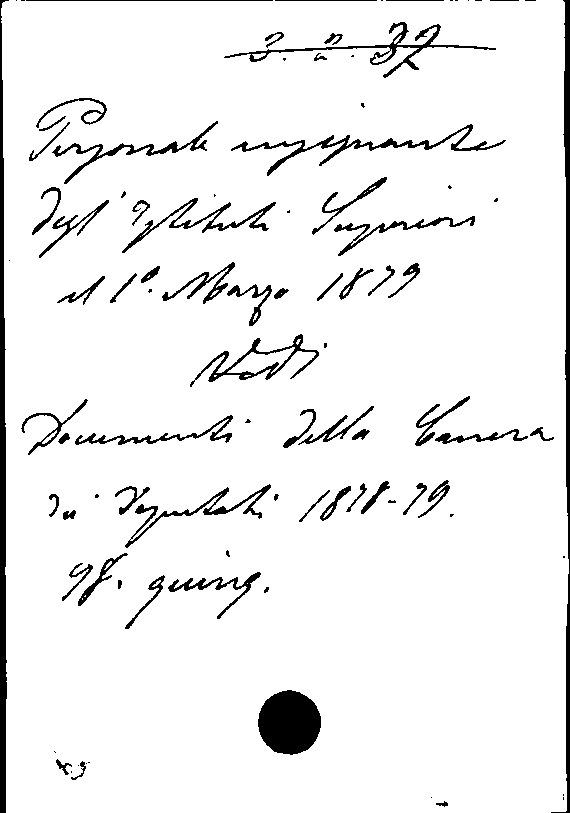 3. a. 37
Personale insegnante
degl' Istituti Superiori
al 1º. Marzo 1879
Vedi
Documenti della Camera
dei Deputati 1878-79.
98. quinq.